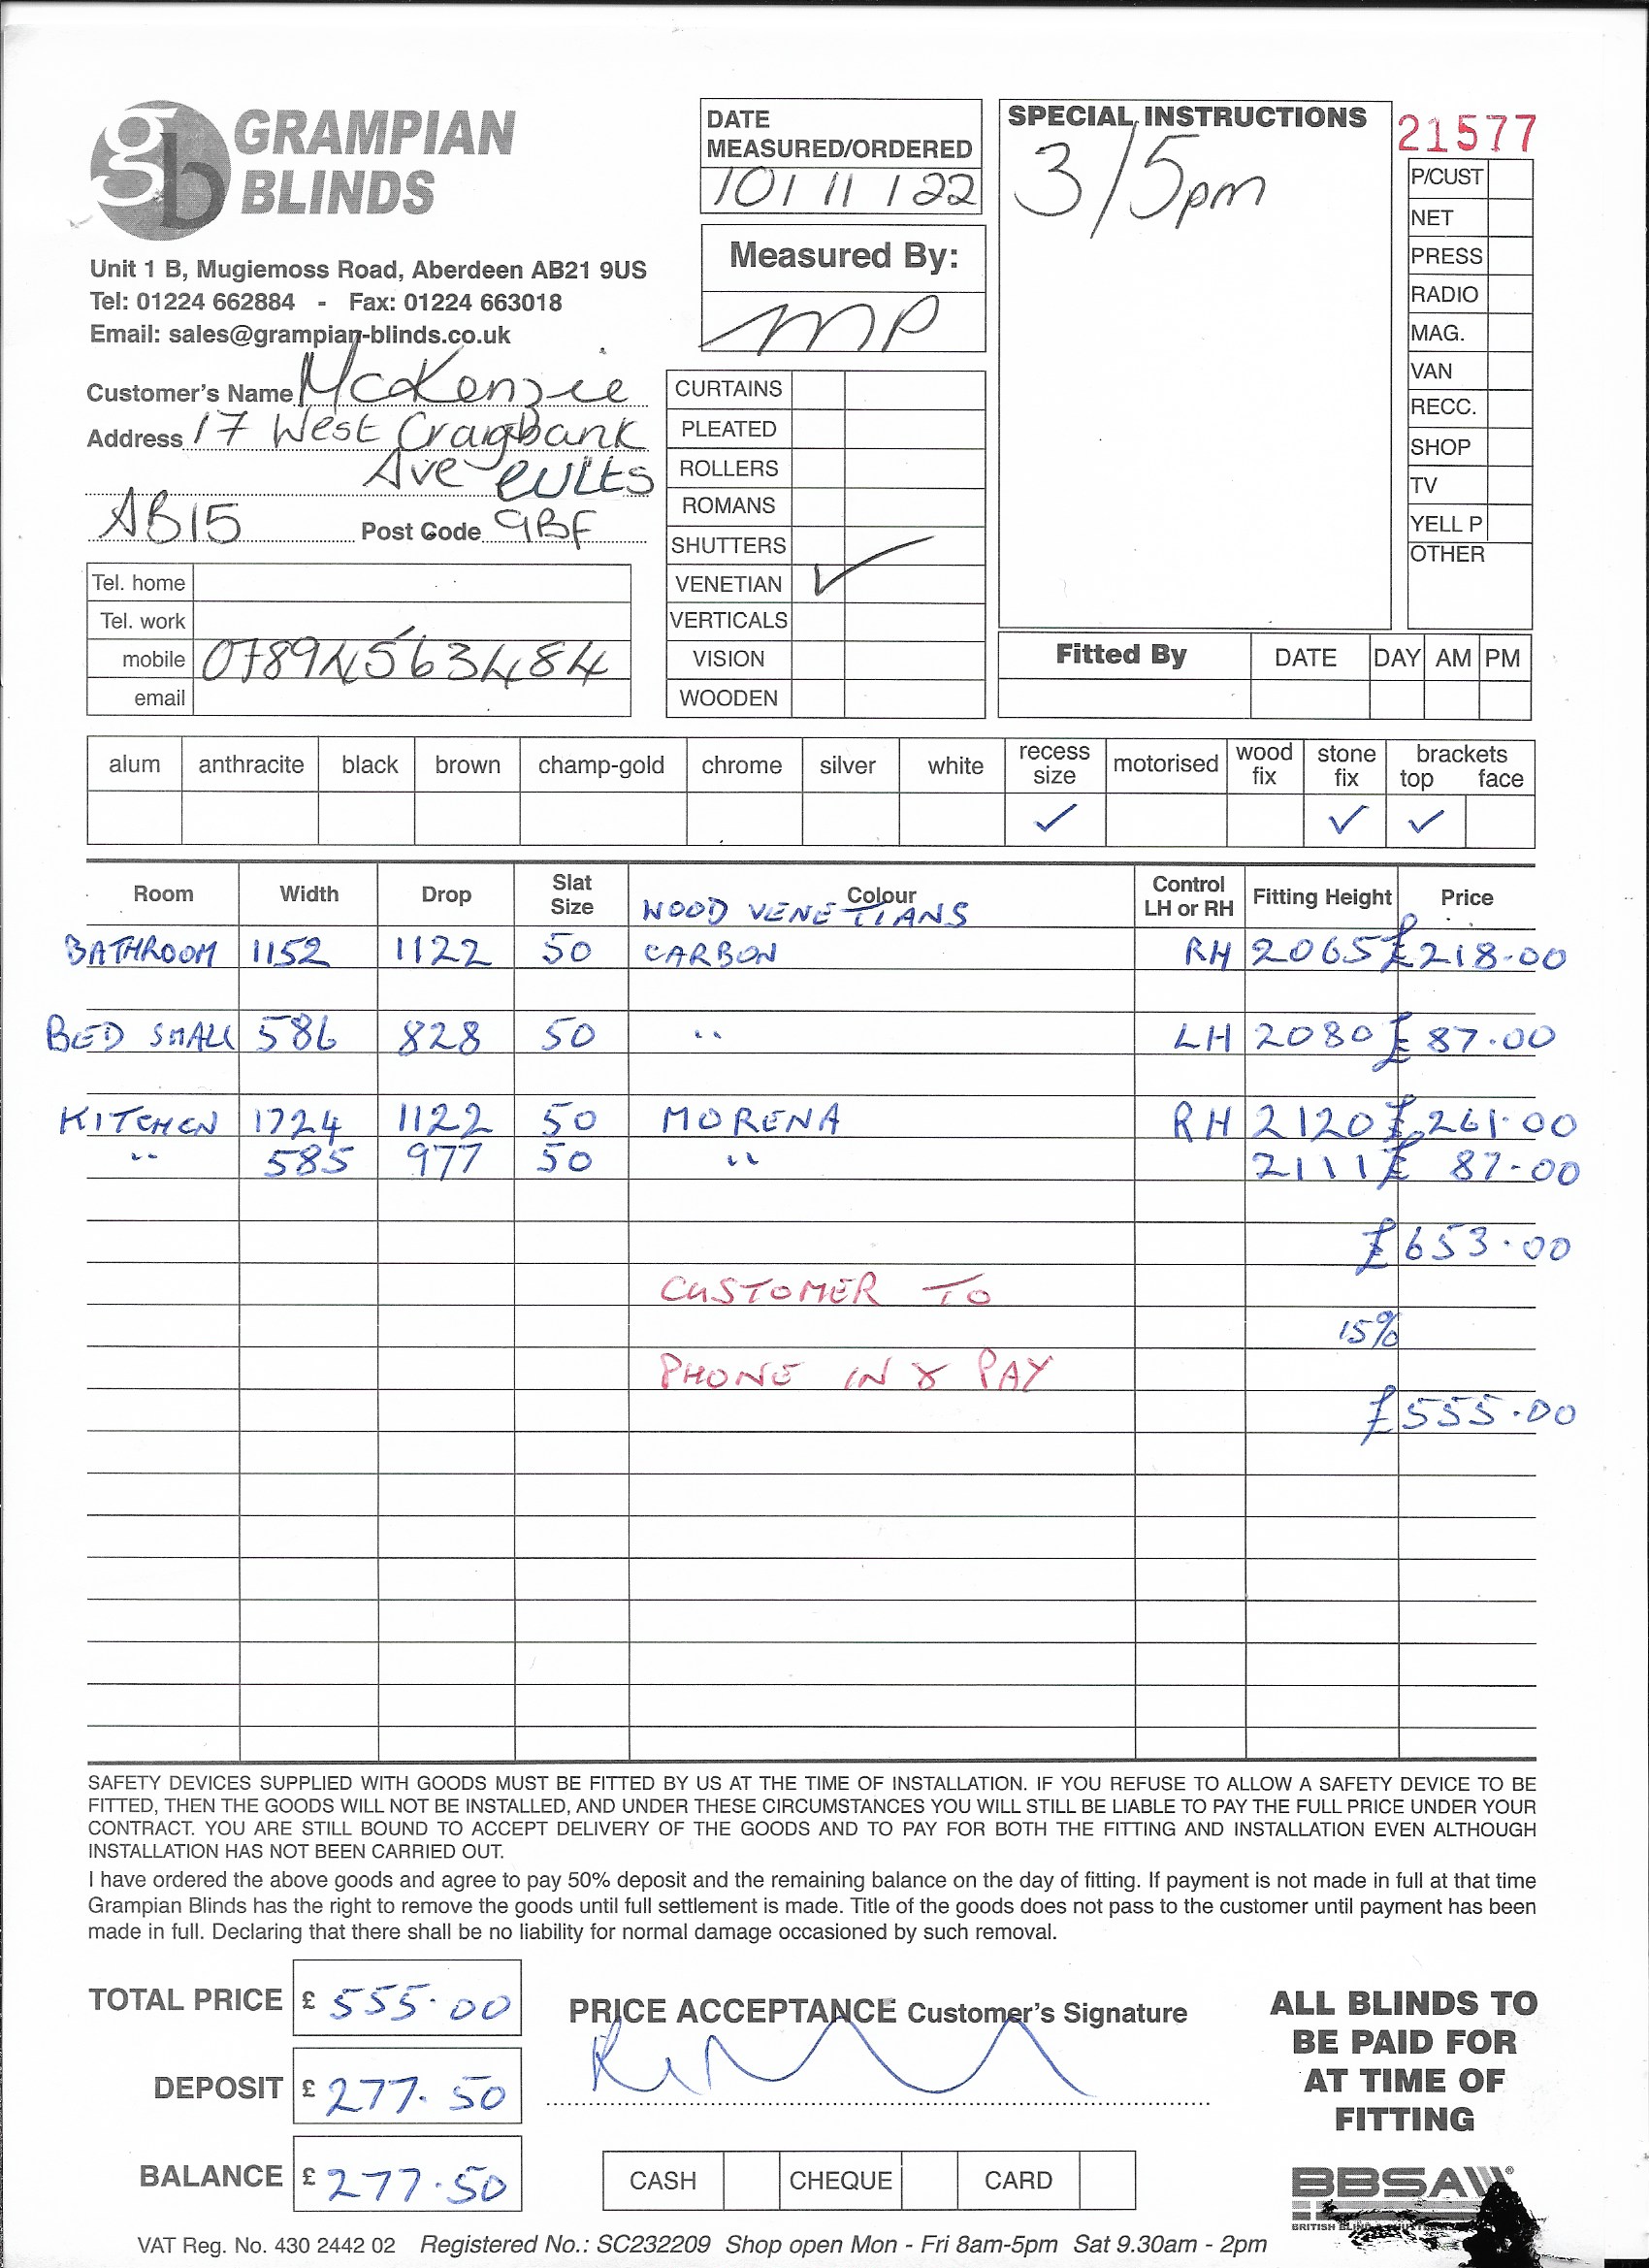 GRAMPIAN
BLINDS
Unit 1 B, Mugiemoss Road, Aberdeen AB21 9US
Tel: 01224 662884 - Fax: 01224 663018
Email: sales@grampian-blinds.co.uk
DATE
MEASURED/ORDERED
10 / 11 / 22
Measured By:
MP
SPECIAL INSTRUCTIONS
3/5pm
21577
P/CUST
NET
PRESS
RADIO
MAG.
VAN
RECC.
SHOP
TV
YELL P
OTHER
Customer's Name McKenzie
Address 17 West Craigbank
Ave Cults
AB15 Post Code 9BF
Tel. home
Tel. work
mobile 07894563484
email
CURTAINS
PLEATED
ROLLERS
ROMANS
SHUTTERS
VENETIAN ✓
VERTICALS
VISION
WOODEN
Fitted By DATE DAY AM PM
alum anthracite black brown champ-gold chrome silver white recess size motorised wood fix stone fix brackets top face
✓ ✓ ✓
Room Width Drop Slat Size Colour Control LH or RH Fitting Height Price
WOOD VENETIANS
BATHROOM 1152 1122 50 CARBON RH 2065 £218.00
BED SMALL 586 828 50 " LH 2080 £87.00
KITCHEN 1724 1122 50 MORENA RH 2120 £261.00
" 585 977 50 " 2111 £87.00
£653.00
CUSTOMER TO
15%
PHONE IN & PAY
£555.00
SAFETY DEVICES SUPPLIED WITH GOODS MUST BE FITTED BY US AT THE TIME OF INSTALLATION. IF YOU REFUSE TO ALLOW A SAFETY DEVICE TO BE
FITTED, THEN THE GOODS WILL NOT BE INSTALLED, AND UNDER THESE CIRCUMSTANCES YOU WILL STILL BE LIABLE TO PAY THE FULL PRICE UNDER YOUR
CONTRACT. YOU ARE STILL BOUND TO ACCEPT DELIVERY OF THE GOODS AND TO PAY FOR BOTH THE FITTING AND INSTALLATION EVEN ALTHOUGH
INSTALLATION HAS NOT BEEN CARRIED OUT.
I have ordered the above goods and agree to pay 50% deposit and the remaining balance on the day of fitting. If payment is not made in full at that time
Grampian Blinds has the right to remove the goods until full settlement is made. Title of the goods does not pass to the customer until payment has been
made in full. Declaring that there shall be no liability for normal damage occasioned by such removal.
TOTAL PRICE £ 555.00
DEPOSIT £ 277.50
BALANCE £ 277.50
PRICE ACCEPTANCE Customer's Signature
CASH CHEQUE CARD
ALL BLINDS TO
BE PAID FOR
AT TIME OF
FITTING
BBSA
BRITISH
VAT Reg. No. 430 2442 02 Registered No.: SC232209 Shop open Mon - Fri 8am-5pm Sat 9.30am - 2pm